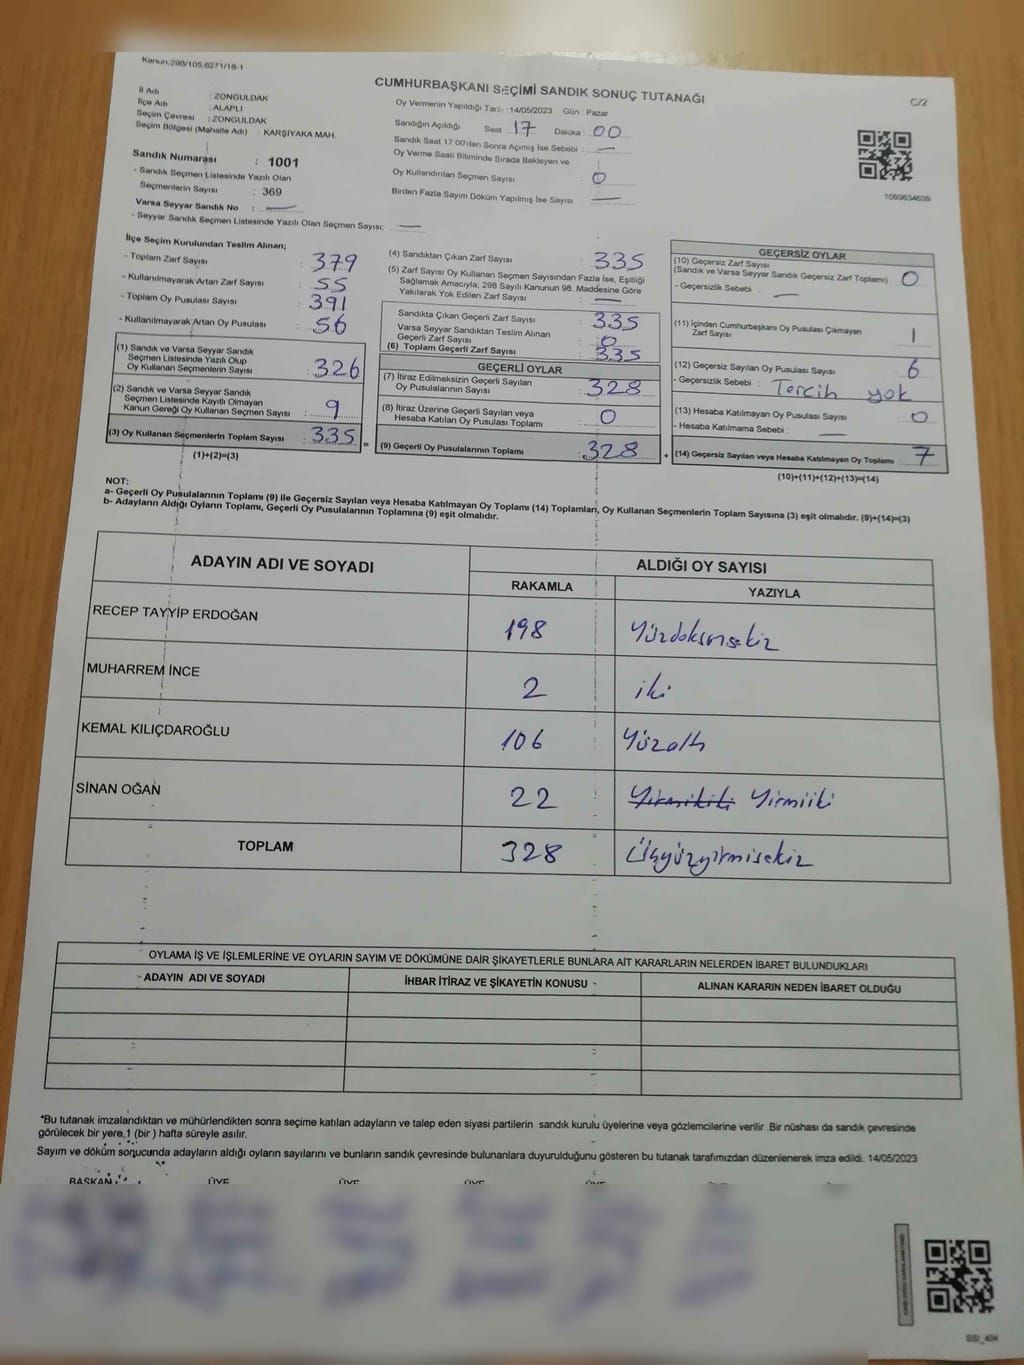 Kanun:298/105,6271/18-1
CUMHURBAŞKANI SEÇİMİ SANDIK SONUÇ TUTANAĞI
C/2
İl Adı : ZONGULDAK
İlçe Adı : ALAPLI
Seçim Çevresi : ZONGULDAK
Seçim Bölgesi (Mahalle Adı) : KARŞIYAKA MAH.
Sandık Numarası : 1001
- Sandık Seçmen Listesinde Yazılı Olan
Seçmenlerin Sayısı : 369
Varsa Seyyar Sandık No : —
- Seyyar Sandık Seçmen Listesinde Yazılı Olan Seçmen Sayısı: —
Oy Vermenin Yapıldığı Tarih :14/05/2023 Gün : Pazar
Sandığın Açıldığı Saat 17 Dakika : 00
Sandık Saat 17:00'den Sonra Açımış İse Sebebi : —
Oy Verme Saati Bitiminde Sırada Bekleyen ve
Oy Kullandırılan Seçmen Sayısı : 0
Birden Fazla Sayım Döküm Yapılmış İse Sayısı : —
1093634639
İlçe Seçim Kurulundan Teslim Alınan;
- Toplam Zarf Sayısı : 379
- Kullanılmayarak Artan Zarf Sayısı : 55
- Toplam Oy Pusulası Sayısı : 391
- Kullanılmayarak Artan Oy Pusulası : 56
(1) Sandık ve Varsa Seyyar Sandık
Seçmen Listesinde Yazılı Olup
Oy Kullanan Seçmenlerin Sayısı : 326
(2) Sandık ve Varsa Seyyar Sandık
Seçmen Listesinde Kayıtlı Olmayan
Kanun Gereği Oy Kullanan Seçmen Sayısı : 9
(3) Oy Kullanan Seçmenlerin Toplam Sayısı : 335 =
(1)+(2)=(3)
(4) Sandıktan Çıkan Zarf Sayısı : 335
(5) Zarf Sayısı Oy Kullanan Seçmen Sayısından Fazla İse, Eşitliği
Sağlamak Amacıyla; 298 Sayılı Kanunun 98. Maddesine Göre
Yakılarak Yok Edilen Zarf Sayısı : —
Sandıkta Çıkan Geçerli Zarf Sayısı : 335
Varsa Seyyar Sandıktan Teslim Alınan
Geçerli Zarf Sayısı : 0
(6) Toplam Geçerli Zarf Sayısı : 335
GEÇERLİ OYLAR
(7) İtiraz Edilmeksizin Geçerli Sayılan
Oy Pusulalarının Sayısı : 328
(8) İtiraz Üzerine Geçerli Sayılan veya
Hesaba Katılan Oy Pusulası Toplamı : 0
(9) Geçerli Oy Pusulalarının Toplamı : 328 +
GEÇERSİZ OYLAR
(10) Geçersiz Zarf Sayısı
(Sandık ve Varsa Seyyar Sandık Geçersiz Zarf Toplamı) : 0
- Geçersizlik Sebebi : —
(11) İçinden Cumhurbaşkanı Oy Pusulası Çıkmayan
Zarf Sayısı : 1
(12) Geçersiz Sayılan Oy Pusulası Sayısı : 6
- Geçersizlik Sebebi : Tercih yok
(13) Hesaba Katılmayan Oy Pusulası Sayısı : 0
- Hesaba Katılmama Sebebi : —
(14) Geçersiz Sayılan veya Hesaba Katılmayan Oy Toplamı : 7
(10)+(11)+(12)+(13)=(14)
NOT:
a- Geçerli Oy Pusulalarının Toplamı (9) ile Geçersiz Sayılan veya Hesaba Katılmayan Oy Toplamı (14) Toplamları, Oy Kullanan Seçmenlerin Toplam Sayısına (3) eşit olmalıdır. (9)+(14)=(3)
b- Adayların Aldığı Oyların Toplamı, Geçerli Oy Pusulalarının Toplamına (9) eşit olmalıdır.
ADAYIN ADI VE SOYADI ALDIĞI OY SAYISI
RAKAMLA YAZIYLA
RECEP TAYYİP ERDOĞAN 198 Yüzdoksansekiz
MUHARREM İNCE 2 iki
KEMAL KILIÇDAROĞLU 106 Yüzaltı
SİNAN OĞAN 22 Yirmikiki Yirmiiki
TOPLAM 328 Üçyüzyirmisekiz
OYLAMA İŞ VE İŞLEMLERİNE VE OYLARIN SAYIM VE DÖKÜMÜNE DAİR ŞİKAYETLERLE BUNLARA AİT KARARLARIN NELERDEN İBARET BULUNDUKLARI
ADAYIN ADI VE SOYADI İHBAR İTİRAZ VE ŞİKAYETİN KONUSU ALINAN KARARIN NEDEN İBARET OLDUĞU
*Bu tutanak imzalandıktan ve mühürlendikten sonra seçime katılan adayların ve talep eden siyasi partilerin sandık kurulu üyelerine veya gözlemcilerine verilir .Bir nüshası da sandık çevresinde
görülecek bir yere 1 (bir ) hafta süreyle asılır.
Sayım ve döküm sonucunda adayların aldığı oyların sayılarını ve bunların sandık çevresinde bulunanlara duyurulduğunu gösteren bu tutanak tarafımızdan düzenlenerek imza edildi. 14/05/2023
BAŞKAN ÜYE ÜYE ÜYE ÜYE
SSI_404